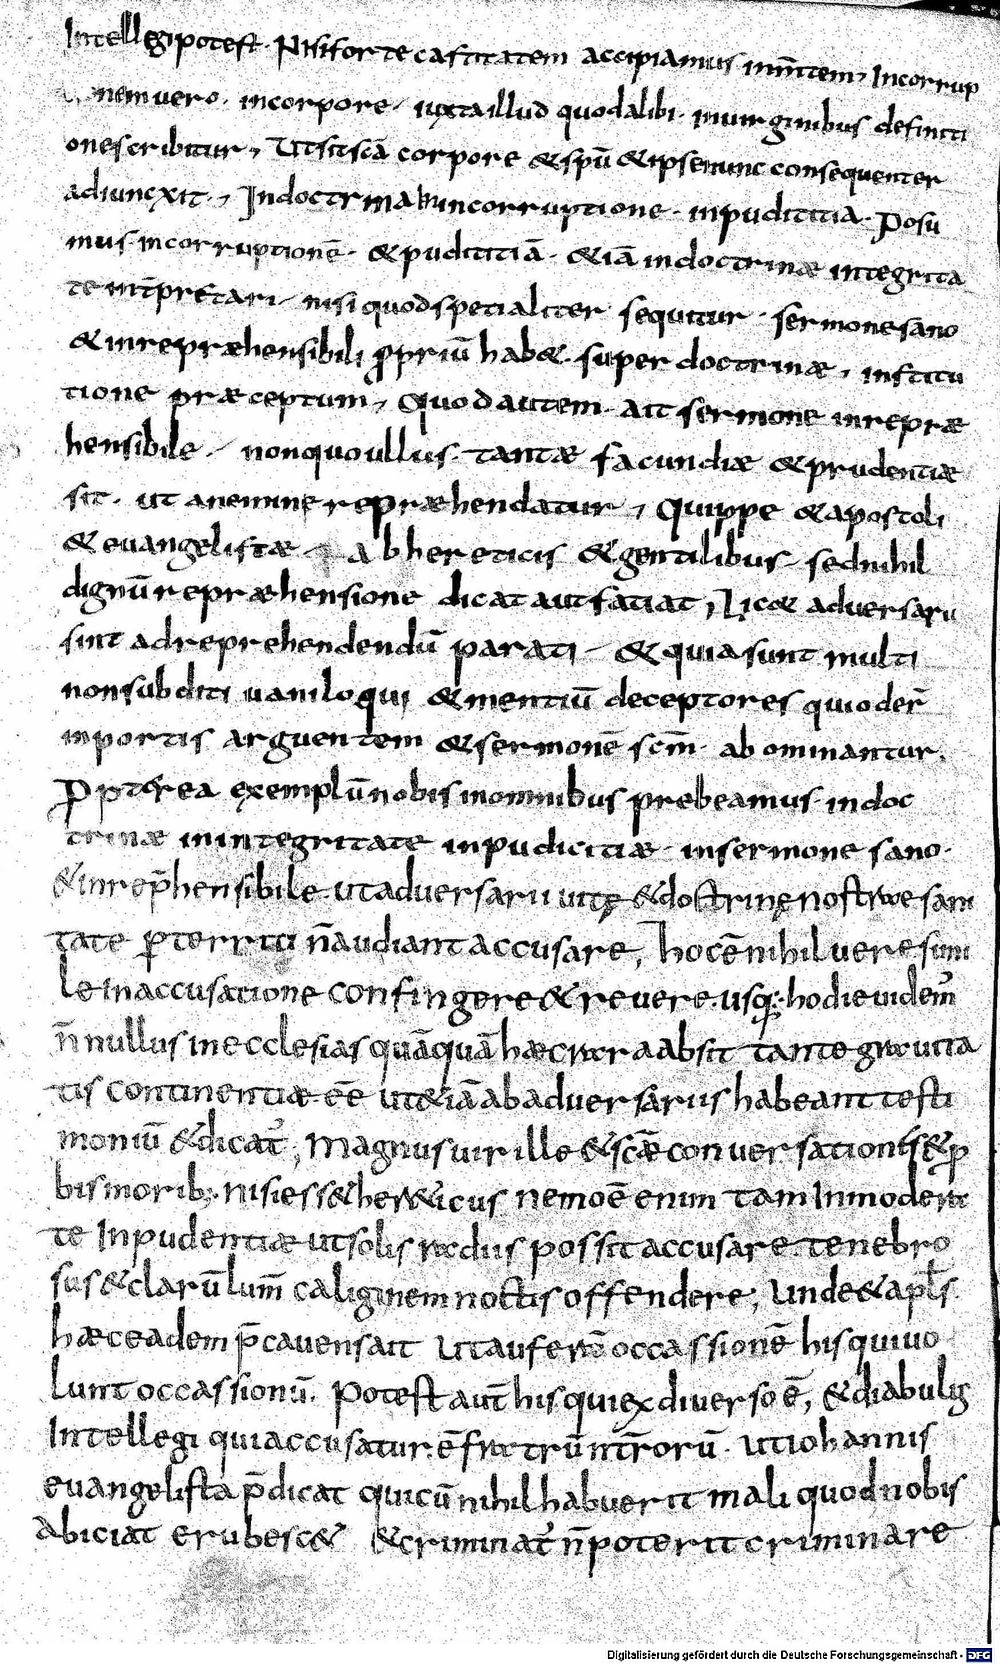 Intellegi potest. Nisi forte castitatem accipiamus in m̄tem, Incorrup
nem vero. in corpore. iuxta illud quod alibi. in uirginibus definiti
one scribitur, Ut sit sc̄a corpore & sp̄u & ipse nunc consequenter
adiuncxit, In doctrina in incorruptione. in pudititia. Posu
mus. incorruptionē. & pudititiā. & iā in doctrinæ integrita
te int̄pretari. nisi quod spetialiter sequitur. sermone sano
& inrepræhensibili ꝓpriū hab&. super doctrinæ, institu
tione præceptum, Quod autem. ait sermone inrepræ
hensibile. non quo ullus. tantæ facundiæ & prudentiæ
sit. ut a nemine repræhendatur, Quippe & apostoli
& euangelistæ ab hereticis & gentilibus. sed nihil
dignū repræhensione dicat aut fatiat, Lic& aduersarii
sint ad reprehendendū parati. & quia sunt multi
non subditi uaniloqui & mentiū deceptores qui oder̄
in portis arguentem & sermonē sc̄m. abominantur.
Ꝓpterea exemplū nobis in omnibus prebeamus. in doc
trinæ in integritate in pudicitiæ. in sermone sano.
& inrep̄hensibile. ut aduersarii uitę & doctrinę nostrae sani
tate ꝑterriti n̄ audiant accusare, hoc ē nihil uere simi
le in accusatione confingere & reuere. usq; hodie uidem̄
n̄nullus in ecclesias quāquā hæc rara absit tante grauita
tis continentiæ. eē ut & iā ab aduersariis habeant testi
moniū & dicat̄, magnus uir ille & sc̄æ conuersationis & ꝓ
bis morib; nisi ess& her&icus nemo ē enim tam inmodera
te inpudentiæ ut solis radiis possit accusare. tenebro
sus & clarū lum̄ caliginem noctis offendere, Unde & apl̄s
hæc eadem p̄cauens ait Ut auferā occassionē his qui uo
lunt occassionū. Potest aut̄ his qui ex diuerso ē, & diabulus
Intellegi qui accusatur. ē fratrū nr̄orū. ut iohannis
euangelista p̄dicat qui cū nihil habuerit mali quod nobis
abiciat erubesc& & criminat̄ n̄ poterit criminare
Digitalisierung gefördert durch die Deutsche Forschungsgemeinschaft - DFG